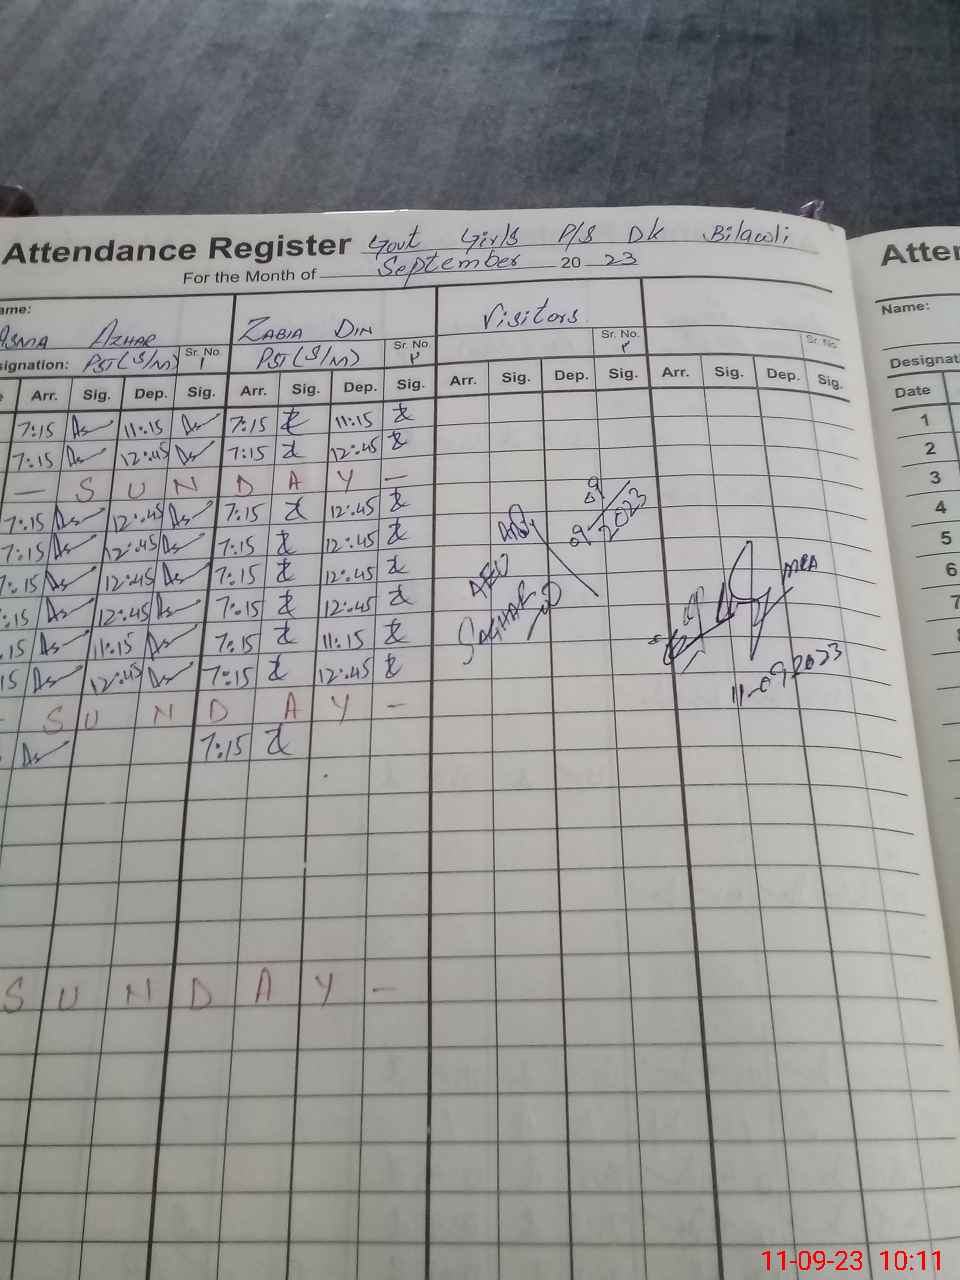 Attendance Register Govt Girls P/S Dk Bilawli Atten
For the Month of September 20 23
ame: Visitors Name:
Asma Azhar Zabia Din
signation: PST(S/M) Sr. No. 1 PST(S/M) Sr. No. ۲ Sr. No. ۳ Sr. No. Designati
e Arr. Sig. Dep. Sig. Arr. Sig. Dep. Sig. Arr. Sig. Dep. Sig. Arr. Sig. Dep. Sig. Date
7:15 11:15 7:15 11:15 1
7:15 12:45 7:15 12:45 2
— S U N D A Y — 3
7:15 12:45 7:15 12:45 4
7:15 12:45 7:15 12:45 5
7:15 12:45 7:15 12:45 6
:15 12:45 7:15 12:45 7
.15 11:15 7:15 11:15 8
15 12:45 7:15 12:45
- S U N D A Y -
7:15
09
09/2023
AEO
MEA
11-09-2023
S U N D A Y -
11-09-23 10:11